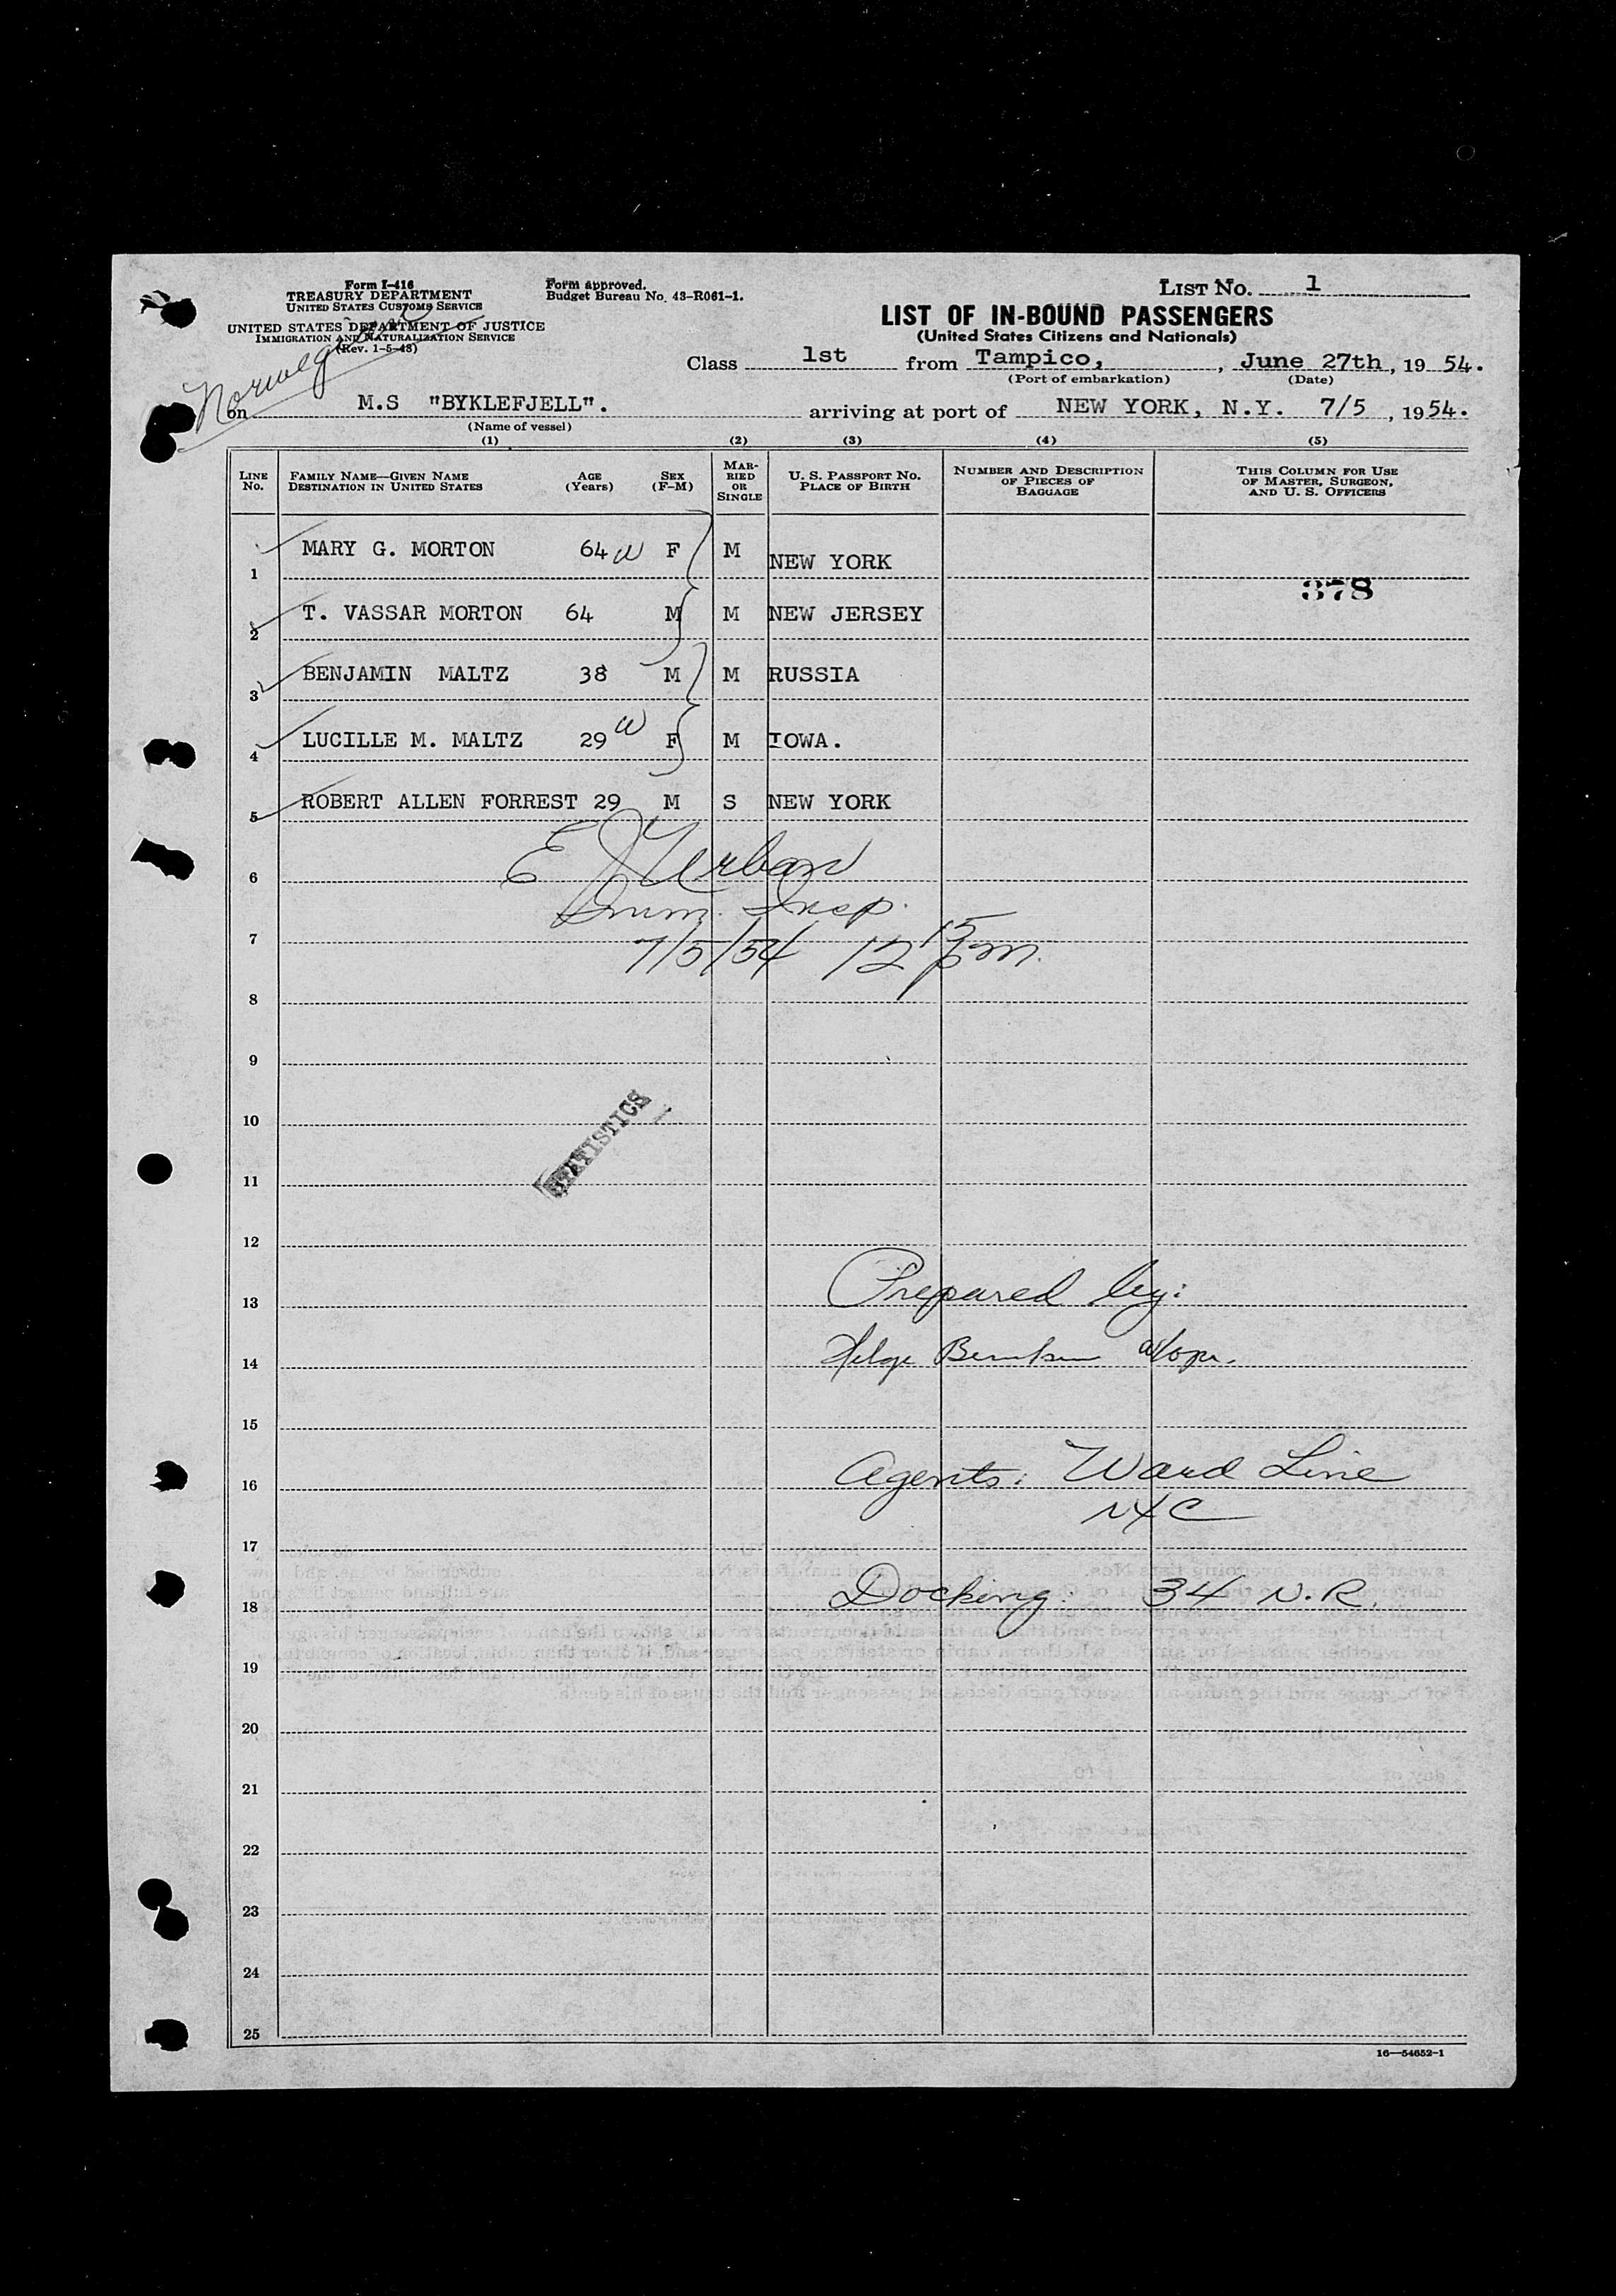 Form I-416
TREASURY DEPARTMENT
UNITED STATES CUSTOMS SERVICE
UNITED STATES DEPARTMENT OF JUSTICE
IMMIGRATION AND NATURALIZATION SERVICE
(Rev. 1-5-48)
Form approved.
Budget Bureau No. 43-R061-1.
LIST NO. 1
LIST OF IN-BOUND PASSENGERS
(United States Citizens and Nationals)
Class 1st from Tampico, , June 27th, 1954.
(Port of embarkation) (Date)
Norwegian
on M.S "BYKLEFJELL". arriving at port of NEW YORK, N.Y. 7/5, 1954.
(Name of vessel)
(1) (2) (3) (4) (5)
LINE NO. FAMILY NAME—GIVEN NAME DESTINATION IN UNITED STATES AGE (Years) SEX (F-M) MARRIED OR SINGLE U. S. PASSPORT NO. PLACE OF BIRTH NUMBER AND DESCRIPTION OF PIECES OF BAGGAGE THIS COLUMN FOR USE OF MASTER, SURGEON, AND U. S. OFFICERS
1 MARY G. MORTON 64 W F M NEW YORK
378
2 T. VASSAR MORTON 64 M M NEW JERSEY
3 BENJAMIN MALTZ 38 M M RUSSIA
4 LUCILLE M. MALTZ 29 W F M IOWA.
5 ROBERT ALLEN FORREST 29 M S NEW YORK
6 E J Urban
Imm. Insp.
7 7/5/54 12 15 pm.
8
9
10
STATISTICS
11
12
13 Prepared by:
14 Helge
15
16 Agents: Ward Line
NYC
17
18 Docking: 34 N.R.
19
20
21
22
23
24
25
16—54652-1